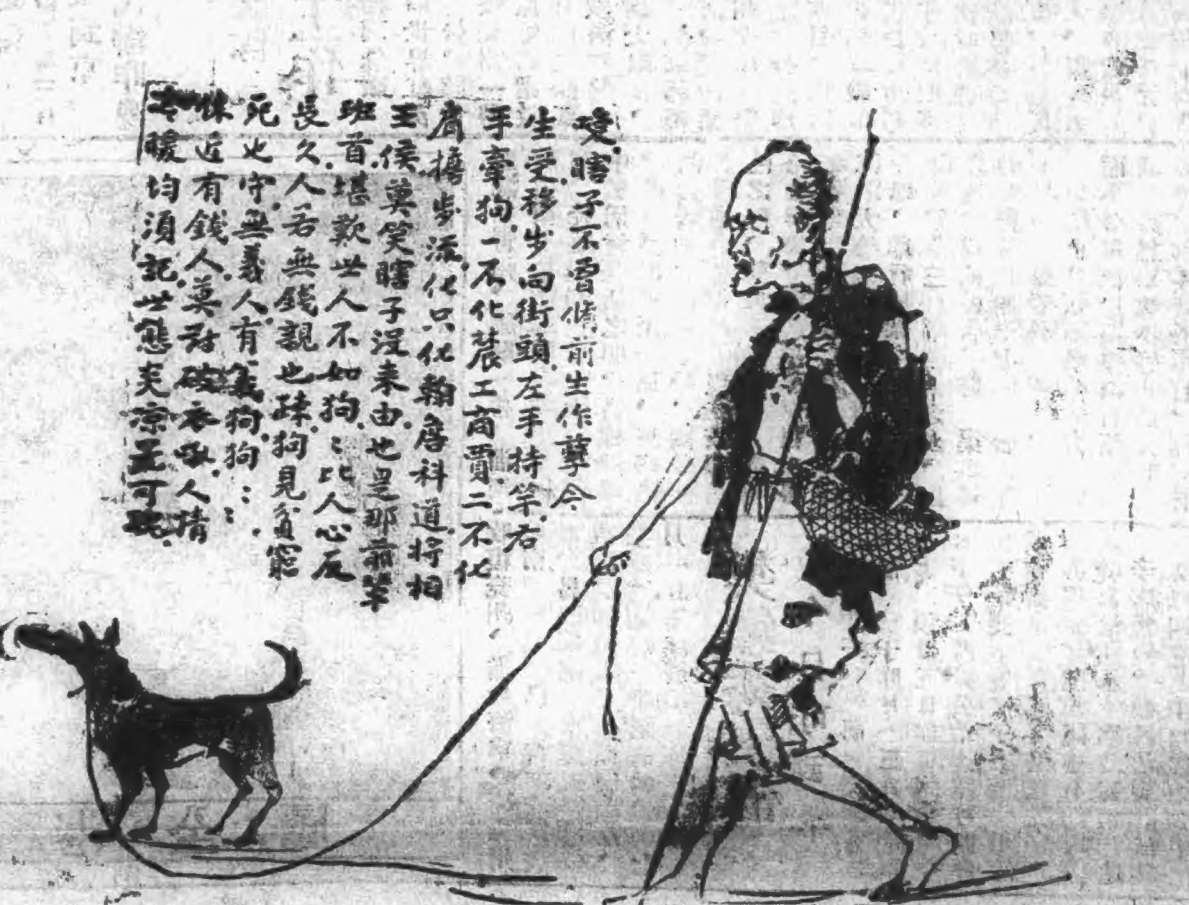 瞎子不曾脩前生作孽今
生受移步向街頭左手持竿右
手牽狗一不化農工商賈二不化
肩擔步流化只化翰詹科道將相
王侯莫笑瞎子沒来由也是那前輩
班首堪歎世人不如狗〻比人心反
長久人若無錢親也疎狗見貧窮
死也守無義人有義狗狗〻〻
休近有錢人莫打破衣叟人情
冷暖均須記世態炎凉豈可